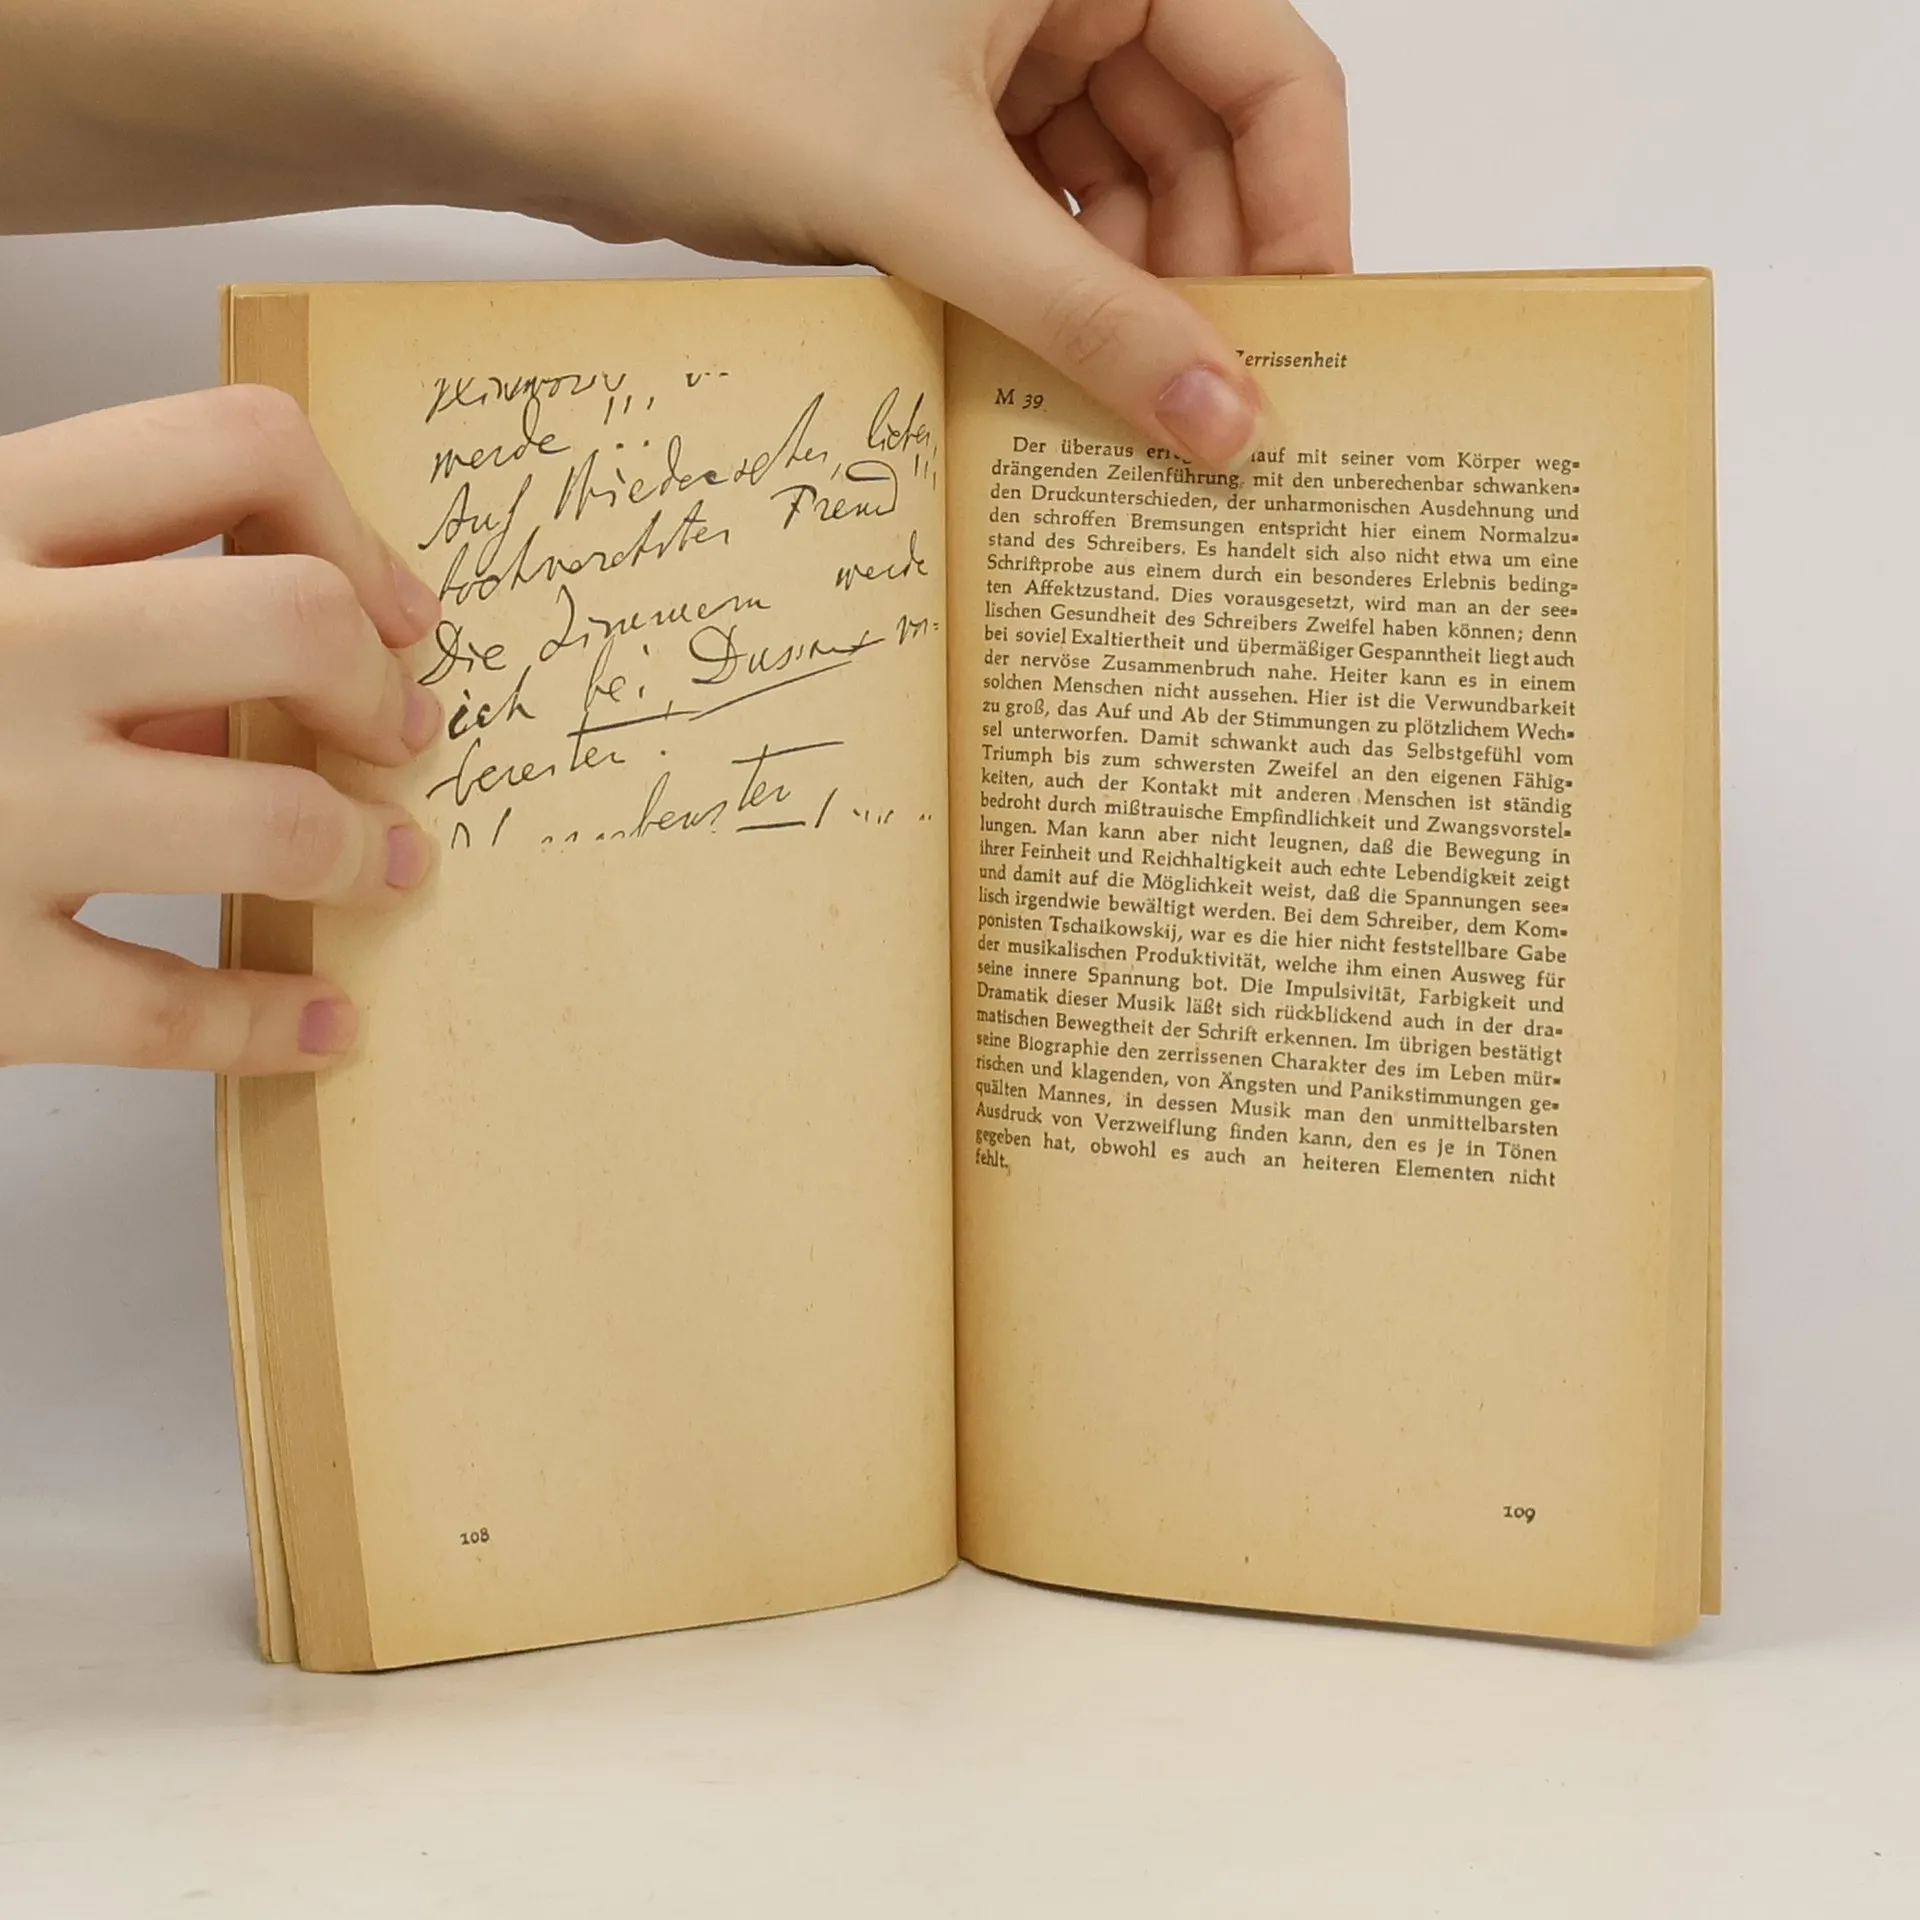 werde
Auf Wiedersehen, lieber,
hochverehrter Freund
Die Zimmern werde
ich bei Dussaux vor=
bereiten.
108
Zerrissenheit
M 39.
Der überaus lauf mit seiner vom Körper weg=
drängenden Zeilenführung, mit den unberechenbar schwanken=
den Druckunterschieden, der unharmonischen Ausdehnung und
den schroffen Bremsungen entspricht hier einem Normalzu=
stand des Schreibers. Es handelt sich also nicht etwa um eine
Schriftprobe aus einem durch ein besonderes Erlebnis beding=
ten Affektzustand. Dies vorausgesetzt, wird man an der see=
lischen Gesundheit des Schreibers Zweifel haben können; denn
bei soviel Exaltiertheit und übermäßiger Gespanntheit liegt auch
der nervöse Zusammenbruch nahe. Heiter kann es in einem
solchen Menschen nicht aussehen. Hier ist die Verwundbarkeit
zu groß, das Auf und Ab der Stimmungen zu plötzlichem Wech=
sel unterworfen. Damit schwankt auch das Selbstgefühl vom
Triumph bis zum schwersten Zweifel an den eigenen Fähig=
keiten, auch der Kontakt mit anderen Menschen ist ständig
bedroht durch mißtrauische Empfindlichkeit und Zwangsvorstel=
lungen. Man kann aber nicht leugnen, daß die Bewegung in
ihrer Feinheit und Reichhaltigkeit auch echte Lebendigkeit zeigt
und damit auf die Möglichkeit weist, daß die Spannungen see=
lisch irgendwie bewältigt werden. Bei dem Schreiber, dem Kom=
ponisten Tschaikowskij, war es die hier nicht feststellbare Gabe
der musikalischen Produktivität, welche ihm einen Ausweg für
seine innere Spannung bot. Die Impulsivität, Farbigkeit und
Dramatik dieser Musik läßt sich rückblickend auch in der dra=
matischen Bewegtheit der Schrift erkennen. Im übrigen bestätigt
seine Biographie den zerrissenen Charakter des im Leben mür=
rischen und klagenden, von Ängsten und Panikstimmungen ge=
quälten Mannes, in dessen Musik man den unmittelbarsten
Ausdruck von Verzweiflung finden kann, den es je in Tönen
gegeben hat, obwohl es auch an heiteren Elementen nicht
fehlt.
109